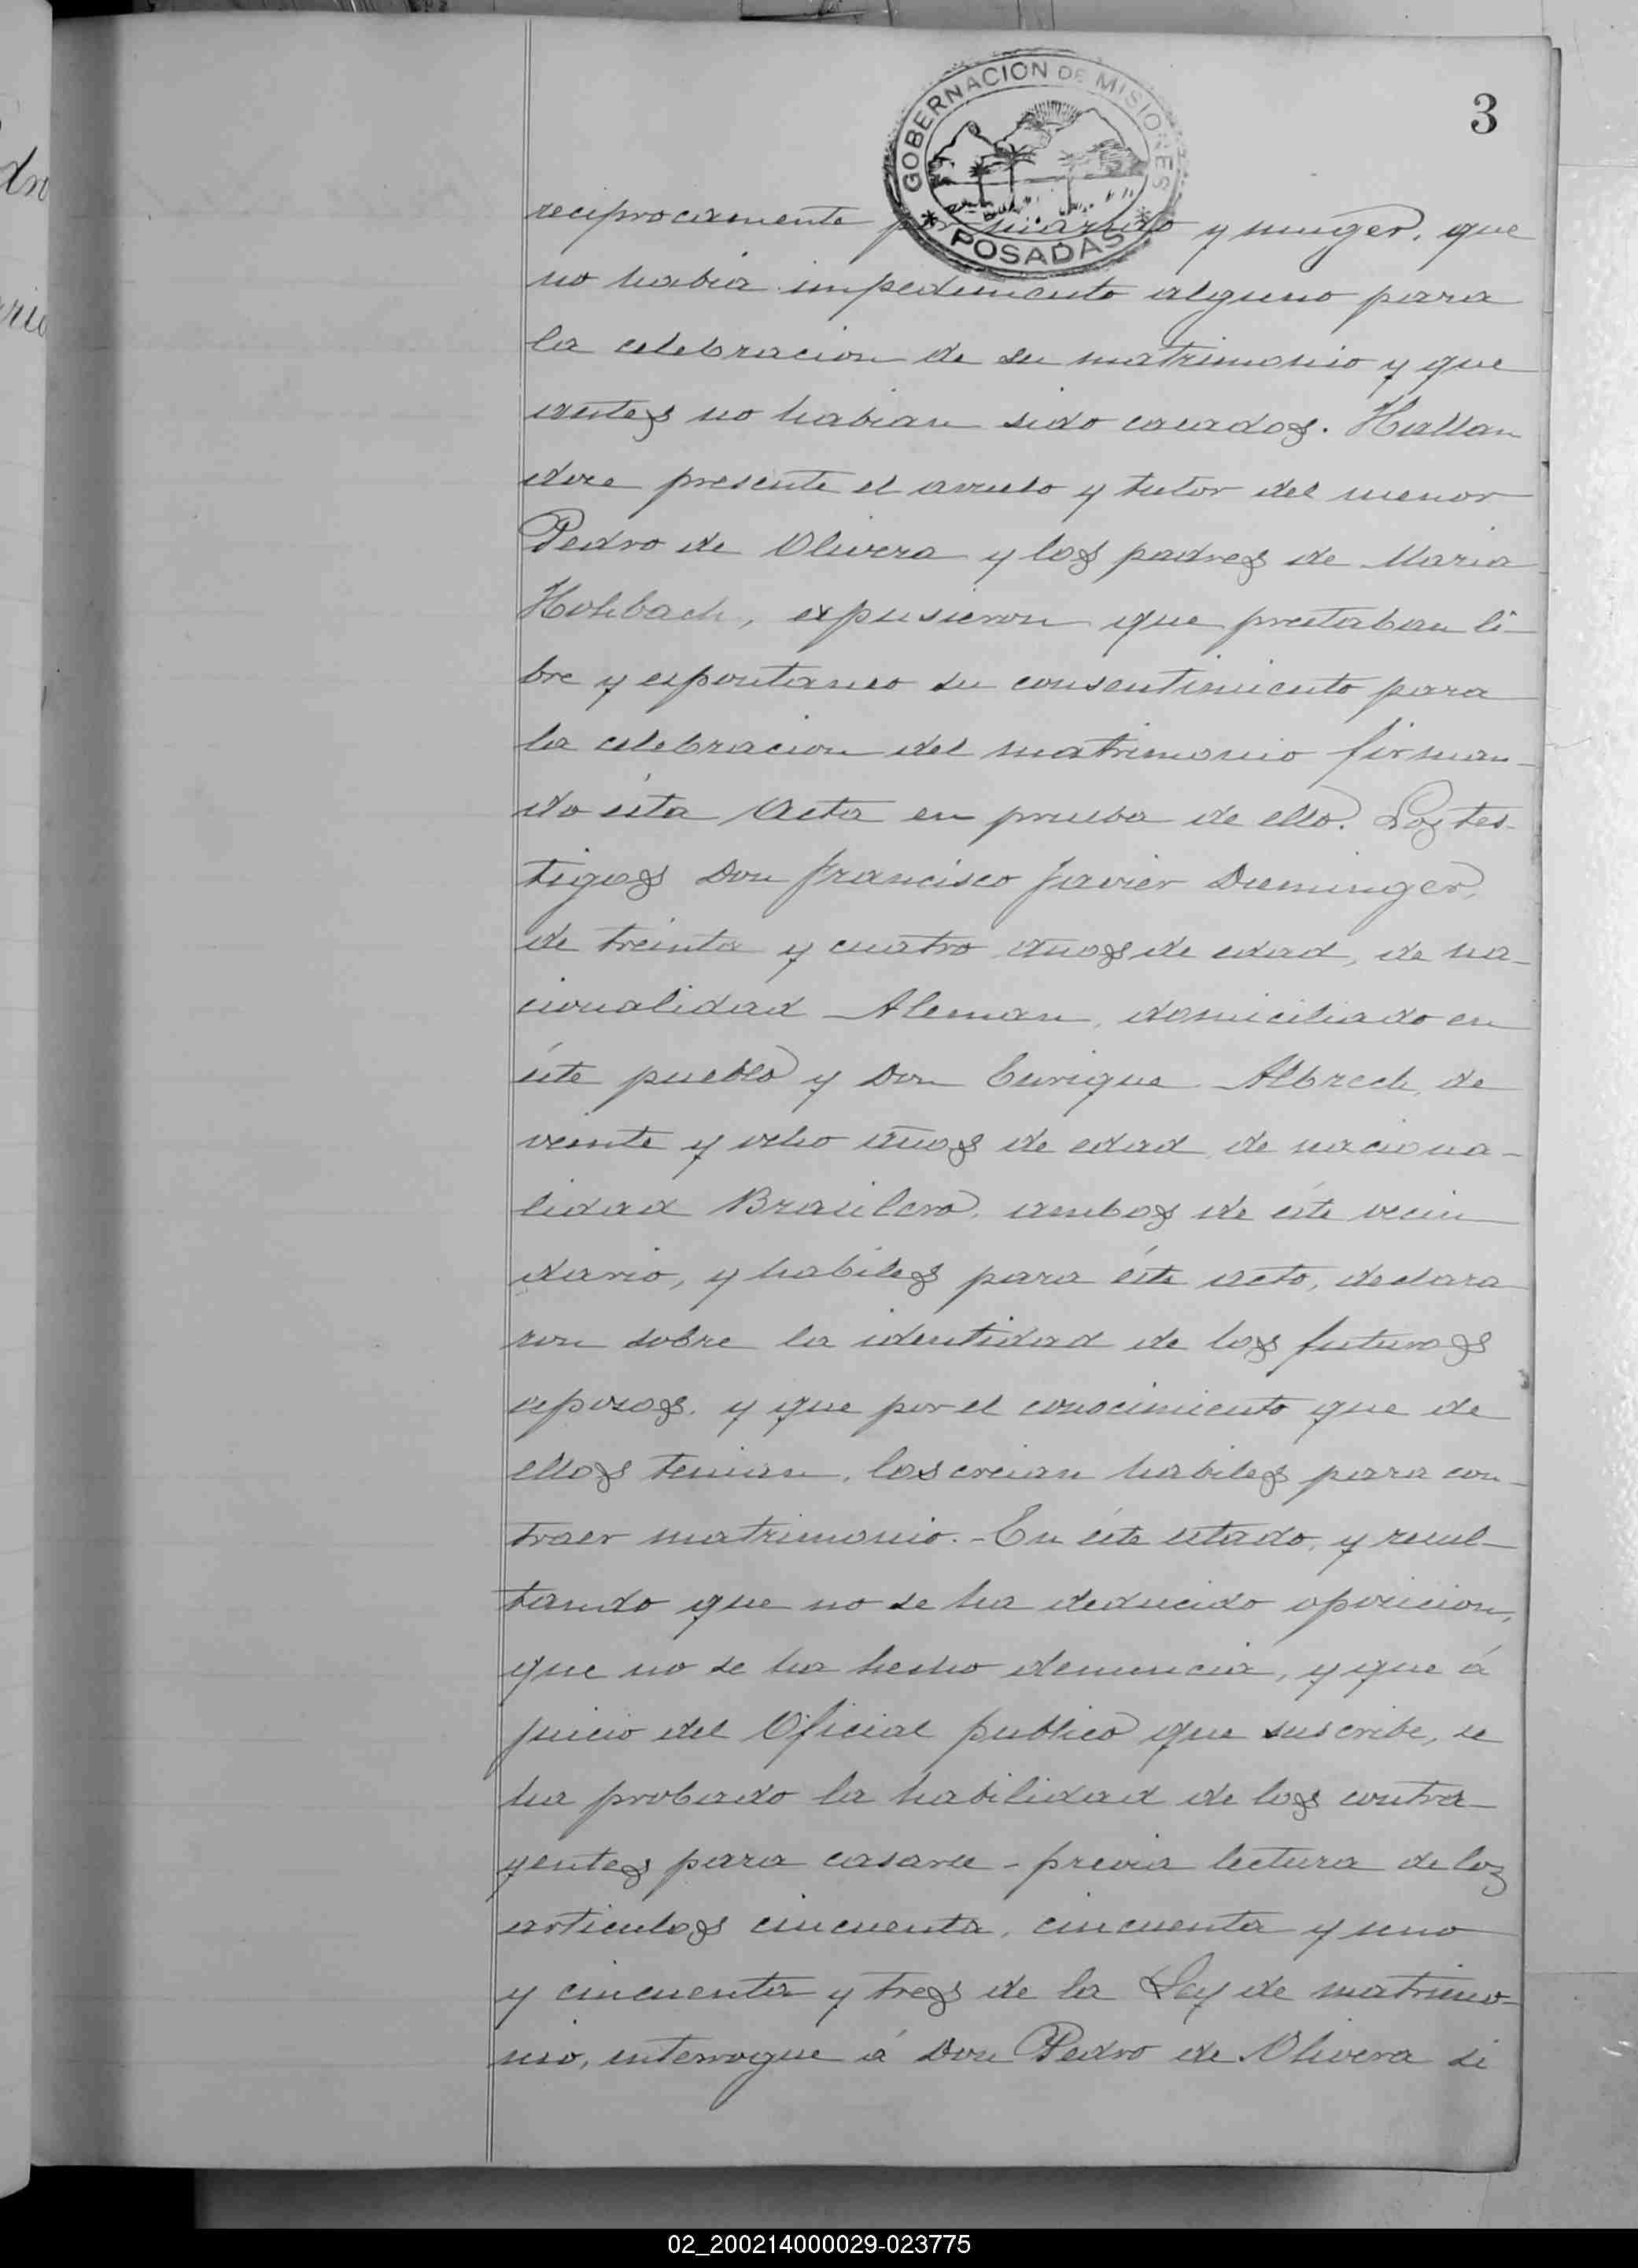 GOBERNACION DE MISIONES
* POSADAS *
3
reciprocamente por marido y muger, que
no habia impedimento alguno para
la celebracion de su matrimonio y que
antes no habian sido casados. Hallan
dose presente el avuelo y tutor del menor
Pedro de Olivera y los padres de Maria
Hohbach, expusieron que prestaban li-
bre y espontaneo su consentimiento para
la celebracion del matrimonio firman-
do ésta Acta en prueba de ello. Los tes-
tigos Don Francisco Javier Dieminger,
de treinta y cuatro años de edad, de na-
cionalidad Aleman, domiciliado en
éste pueblo y Don Enrique Albrech, de
veinte y ocho años de edad de naciona-
lidad Brasilero, ambos de éste vecin
dario, y habiles para éste acto, declara
ron sobre la identidad de los futuros
esposos, y que por el conocimiento que de
ellos tenian, los creian habiles para con-
traer matrimonio. - En éste estado, y resul-
tando que no se ha deducido oposicion,
que no se ha hecho denuncia, y que á
juicio del Oficial publico que suscribe, se
ha probado la habilidad de los contra-
yentes para casarse - previa lectura de los
articulos cincuenta, cincuenta y uno
y cincuenta y tres de la Ley de matrimo-
nio, interrogue á Don Pedro de Olivera si
02_200214000029-023775